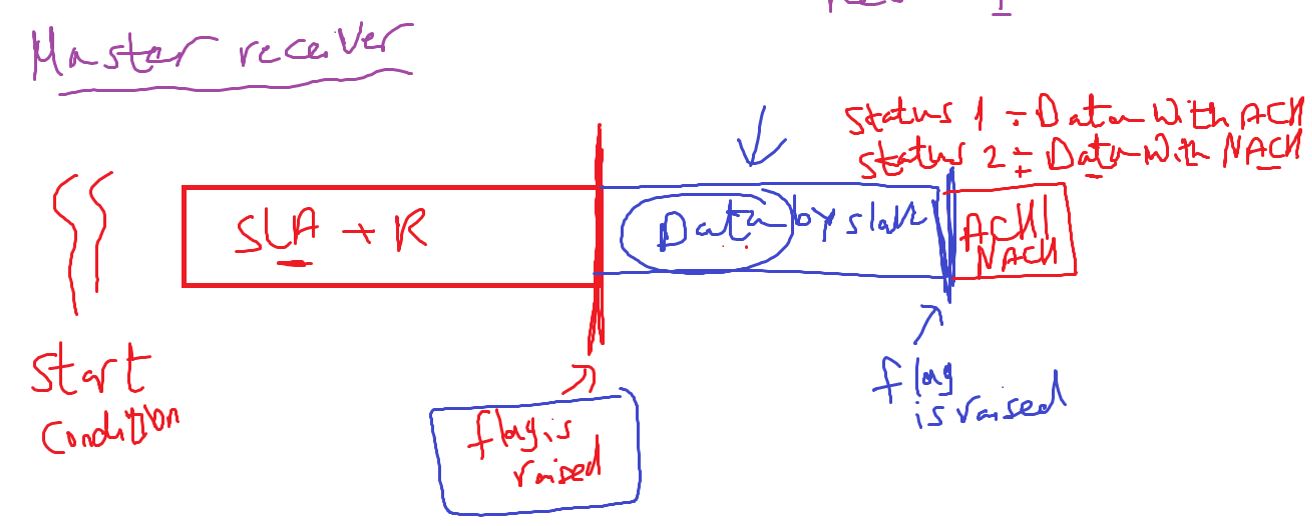 Master receiver
Status 1 : Data With ACK
Status 2 : Data With NACK
SLA + R
Data by slave
ACK/
NACK
Start
Condition
flag is
raised
flag
is raised